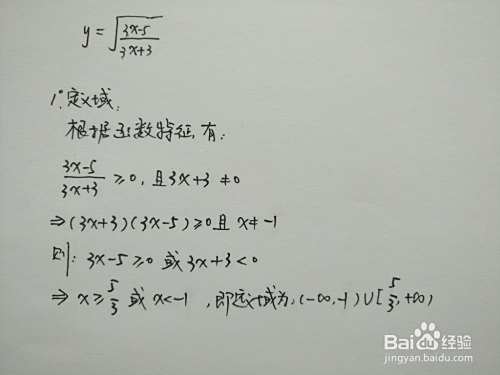 y = √((3x-5)/(3x+3))
1°.定义域:
根据函数特征,有:
(3x-5)/(3x+3) ≥0, 且3x+3≠0
⇒(3x+3)(3x-5)≥0且 x≠-1
则: 3x-5≥0 或 3x+3<0
⇒ x≥5/3 或 x<-1 , 即定义域为:(-∞,-1)∪[5/3,+∞)
Bai du 经验
jingyan.baidu.com